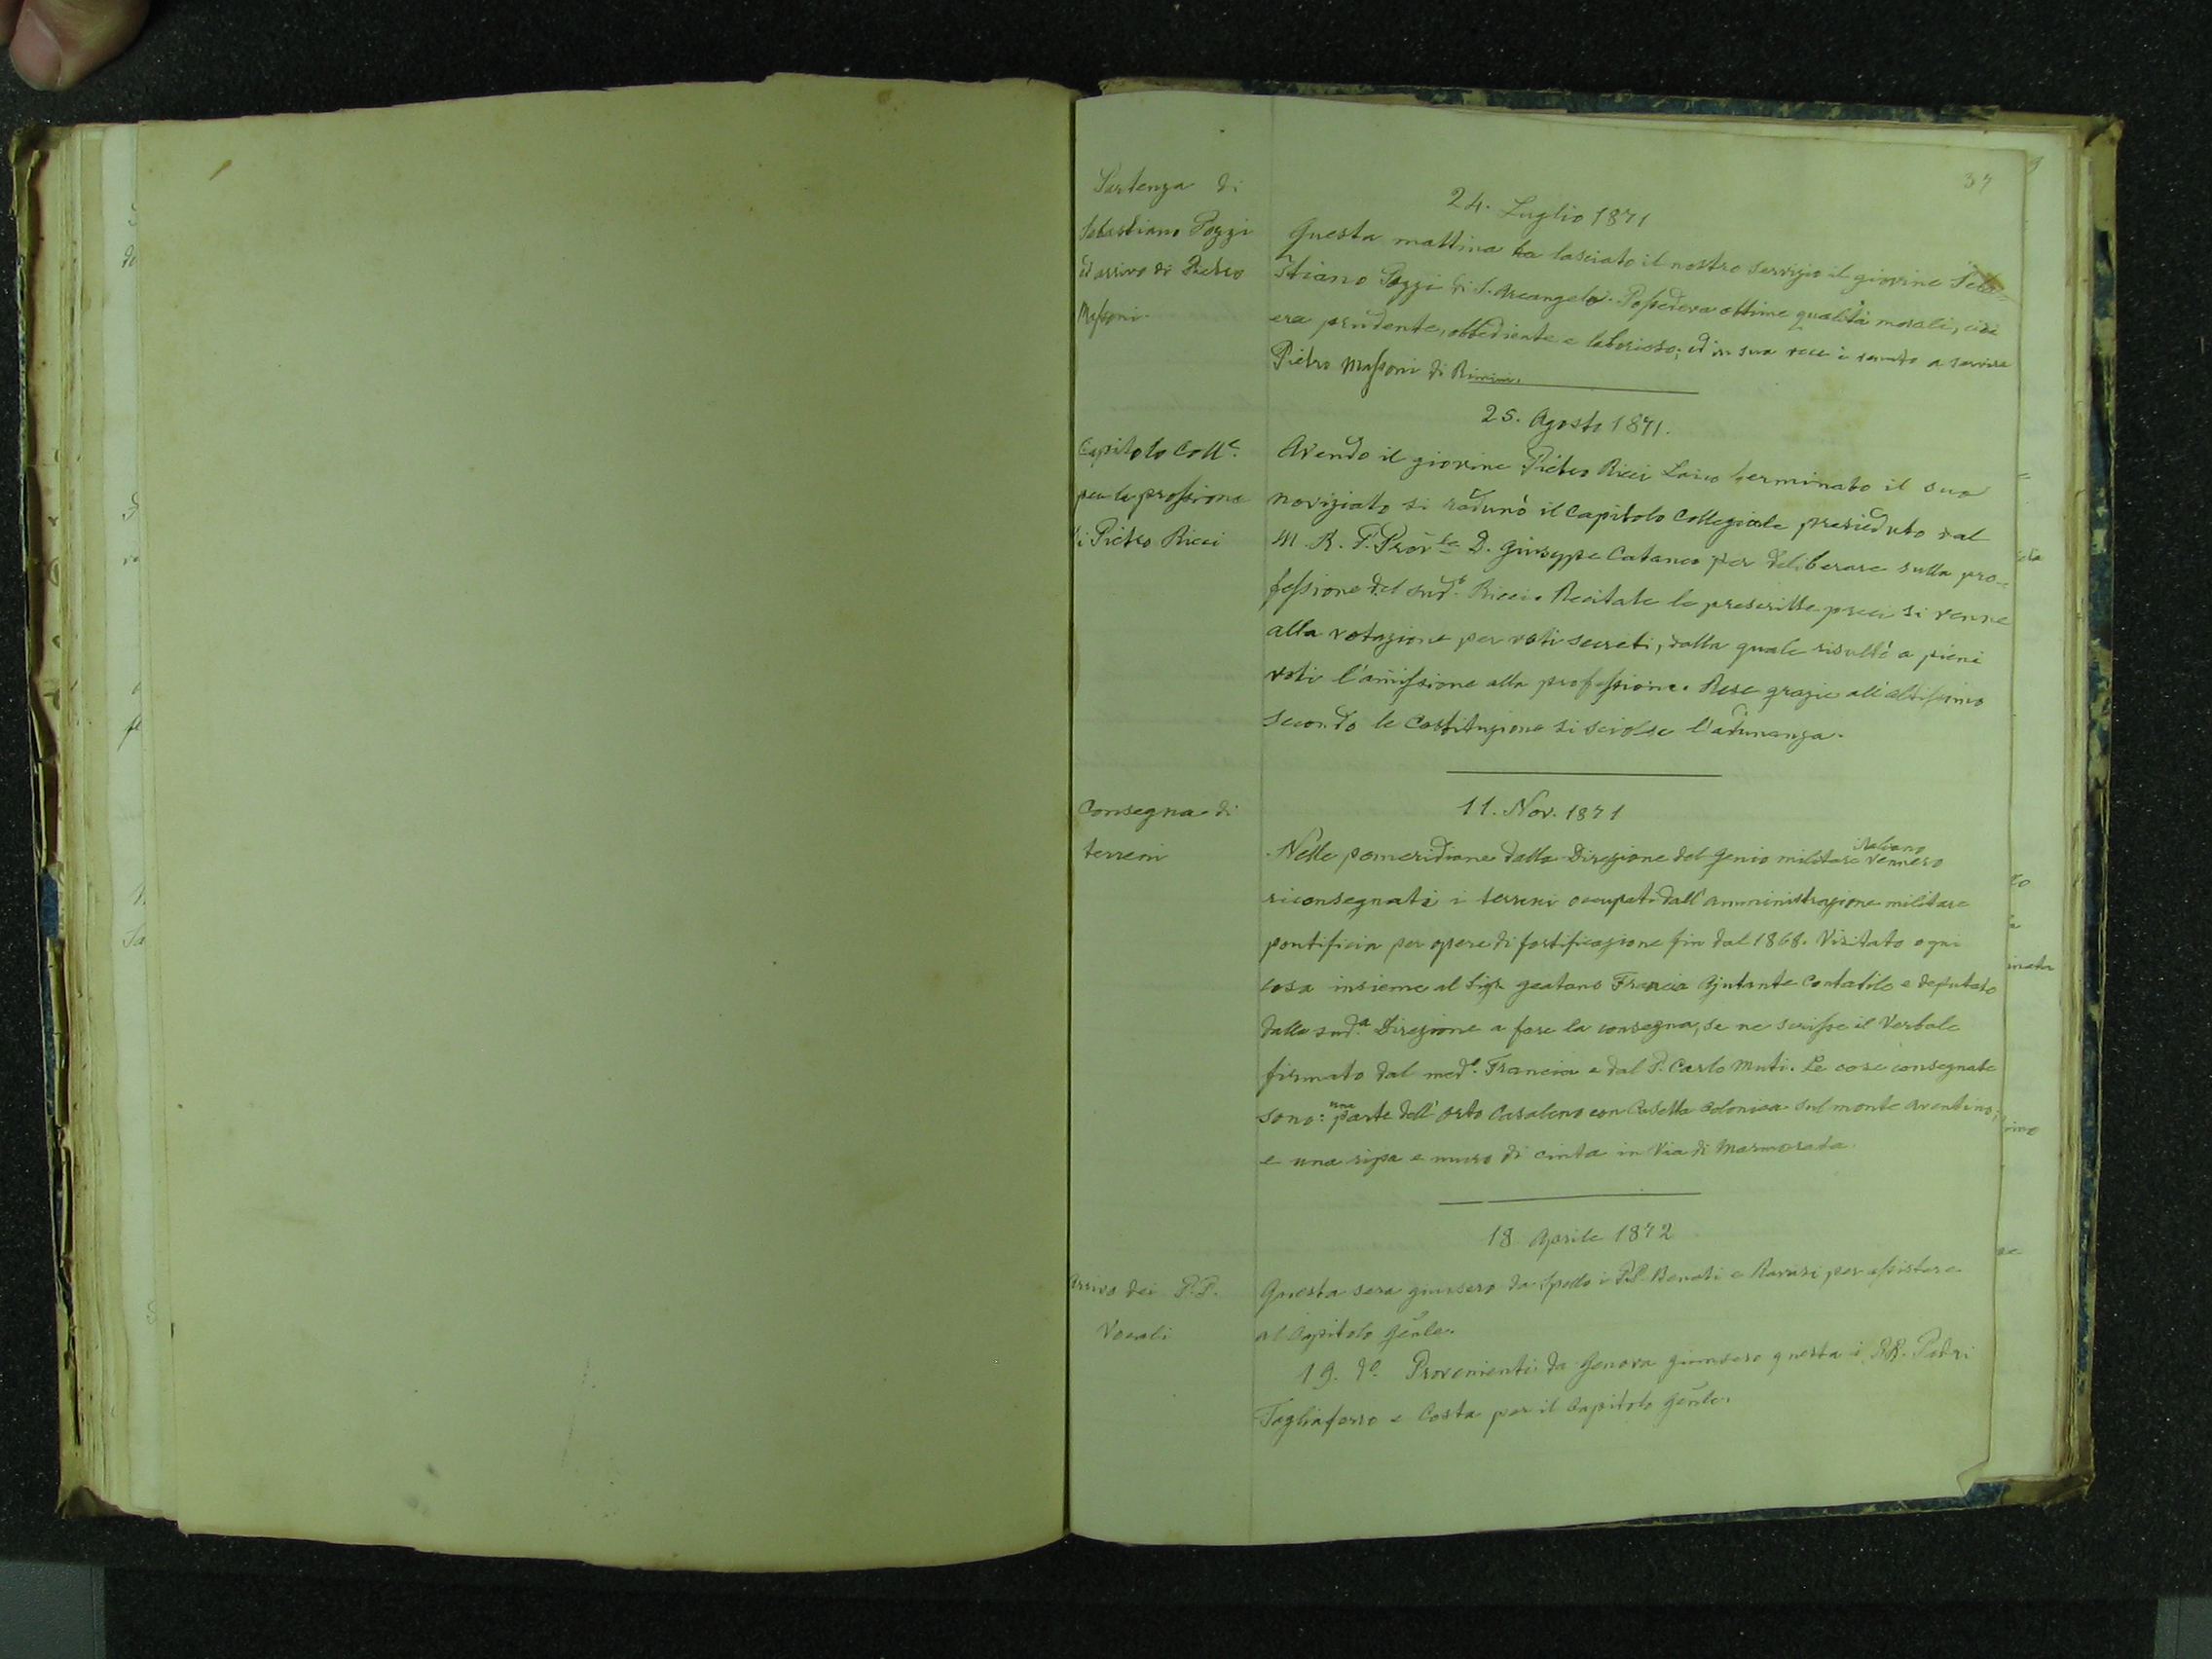 37
Partenza di
Sebastiano Pozzi
ed arrivo di Pietro
Massoni.
24. Luglio 1871
Questa mattina ha lasciato il nostro servizio il giovine Seba=
stiano Pozzi di S. Arcangelo. Possedeva ottime qualità morali, cioè
era prudente, obbediente e laborioso; ed in sua vece è venuto a servire
Pietro Massoni di Rimini.
Capitolo Coll.e
per la professione
di Pietro Ricci
25. Agosto 1871.
Avendo il giovine Pietro Ricci Laico terminato il suo
noviziato si radunò il Capitolo Collegiale presieduto dal
M. R. P. Prov.le D. Giuseppe Cataneo per deliberare sulla pro=
fessione del sud.o Ricci. Recitate le prescritte preci si venne
alla votazione per voti secreti, dalla quale risultò a pieni
voti l'amissione alla professione. Rese grazie all'Altissimo
secondo le Costituzione si sciolse l'adunanza.
Consegna di
terreni
11. Nov. 1871
Nelle pomeridiane dalla Direzione del Genio militare italiano vennero
riconsegnati i terreni occupati dall'amministrazione militare
pontificia per opere di fortificazione fin dal 1868. Visitato ogni
cosa insieme al Sigr. Geatano Francia Ajutante Contabile e deputato
dalla sud.a Direzione a fare la consegna, se ne scrisse il Verbale
firmato dal med.o Francia e dal P. Carlo Muti. Le cose consegnate
sono: una parte dell'orto Casaleno con Casetta Colonica sul monte Aventino;
e una ripa e muro di cinta in Via di Marmorata
Arrivo dei P.P.
Vocali
18. Aprile 1872
Questa sera giunsero da Spello i P.P. Benati e Ravasi per assistere
al Capitolo Genle.
19. do. Provenienti da Genova giunsero questa i RR. Padri
Tagliaferro e Costa per il Capitolo Genle.